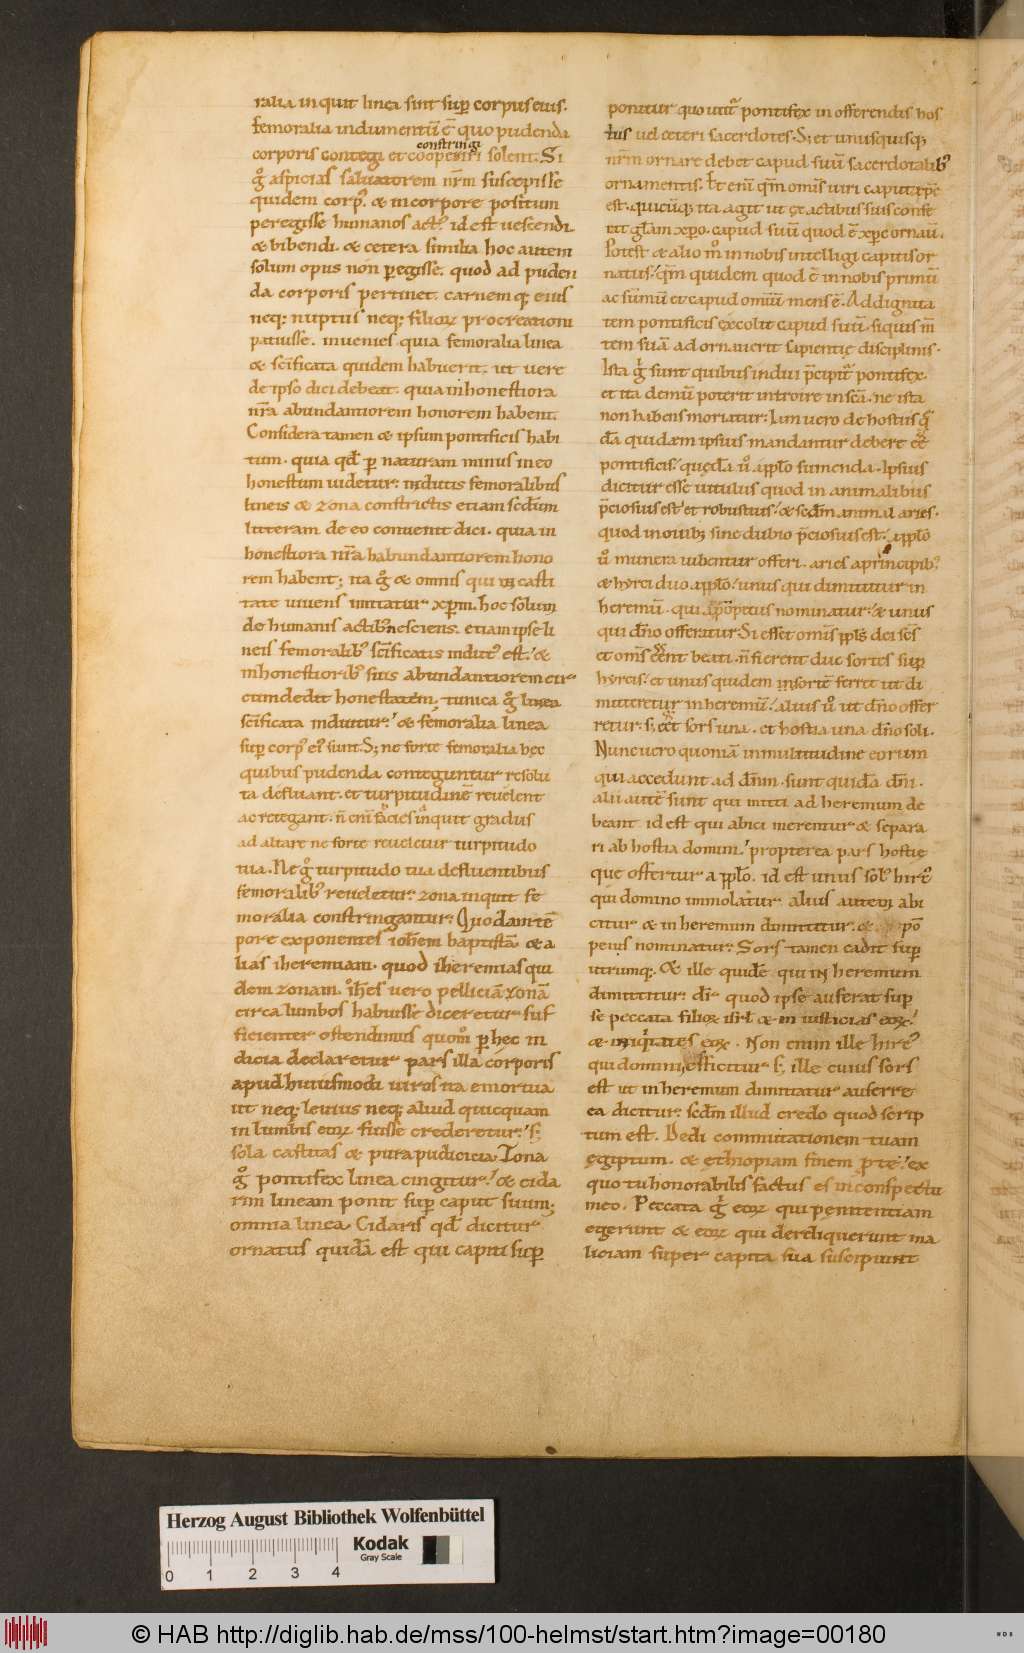 ralia inquit linea sint suꝑ corpus eius.
Femoralia indumentū ē quo pudenda
constringi
corporis contegi et cooperiri solent. Si
gͦ aspicias saluatorem nr̄m suscepisse
quidem corpꝰ. & in corpore positum
peregisse humanos actꝰ. id est uescendi.
& bibendi. & cetera similia hoc autem
solum opus non ꝑegisse. quod ad puden
da corporis pertinet. carnemq; eius
neq; nuptus neq; filioꝝ procreationi
patuisse. inuenies quia femoralia linea
& sc̄ificata quidem habuerit. ut uere
de ipso dici debeat. quia inhonestiora
nr̄a abundantiorem honorem habent.
Considera tamen & ipsum pontificis habi
tum. quia qd̄ ꝑ naturam minus in eo
honestum uidetur: indutis femoralibus
lineis & zona constrictis etiam scd̄um
litteram de eo conuenit dici. quia in
honestiora nr̄a habundantiorem hono
rem habent; ita gͦ & omnis qui in casti
tate uiuens imitatur xp̄m. hoc solum
de humanis actibꝰ nesciens. etiam ipse li
neis femoralibꝰ sc̄ificatis indutꝰ est. &
inhonestioribꝰ suis abundantiorem cir
cumdedit honestatem. tunica gͦ linea
sc̄ificata induitur. & femoralia linea
suꝑ corpꝰ eiꝰ sunt. S; ne forte femoralia hec
quibus pudenda conteguntur resolu
ta defluant. et turpitudinē reuelent
ac retegant. n̄ eni facies inquit gradus
ad altare ne forte reueletur turpitudo
tua. Ne gͦ turpitudo tua defluentibus
femoralibꝰ reueletur. zona inquit fe
moralia constringantur: Quodam tē
pore exponentes ioh̄em baptistā. & a
lias iheremiam. quod iheremias qui
dem zonam. ioh̄es uero pelliciā zonā
circa lumbos habuisse diceretur suf
ficienter ostendimus quomͦ ꝑ hec in
dicia declaretur pars illa corporis
apud huiusmodi uiros ita emortua
ut neq; leuius neq; aliud quicquam
in lumbis eoꝝ fuisse crederetur. s;
sola castitas & pura pudicicia. Zona
gͦ pontifex linea cingitur. & cida
rim lineam ponit suꝑ caput suum;
omnia linea. Cidaris qd̄ dicitur
ornatus quidā est qui capiti suꝑ
ponitur quo utitͬ pontifex in offerendis hos
tiis uel ceteri sacerdotes. S; et unusquisq;
nr̄m ornare debet capud suū sacerdotalibꝰ
ornamentis. Et eni qm̄ omīs uiri caput xp̄c
est. quicūq; ita agit ut ex actibus suis confe
rat gl̄am xp̄o. capud suū quod ē xp̄c ornauit.
Potest & alio mͦ in nobis intelligi capitis or
natus. qm̄ quidem quod ē in nobis primū
ac sūmū et capud omniū mens ē. Ad dignita
tem pontificis excolit capud suū. siquis m̄
tem suā adornauerit sapientię disciplinis.
Ista gͦ sunt quibus indui p̄cipitͬ pontifex.
et ita demū poterit introire in sc̄a. ne ista
non habens moriatur: Iam uero de hostiis q̄
dā quidem ipsius mandantur debere ee
pontificis. quędā uͦ a ppl̄o sumenda. Ipsius
dicitur esse uitulus quod in animalibus
p̄ciosius est et robustius. & scd̄m animal aries.
quod in ouibꝫ sine dubio p̄ciosius est. a ppl̄o
uͦ munera iubentur offeri. aries a principibꝰ
& hyrci duo a ppl̄o. unus qui dimittitur in
heremū. qui apopōpeius nominatur. & unus
qui dn̄o offeratur. Si esset omīs ppl̄s dei sc̄s
et omīs eēnt beati. n̄ fierent duę sortes suꝑ
hyrcis. et unus quidem in sortē ferret ut di
mitteretur in heremū. alius uͦ ut dn̄o offer
retur. s; eēt sors una. et hostia una dn̄o soli.
Nunc uero quoniā in multitudine eorum
qui accedunt ad dn̄m. sunt quidā dn̄i.
alii autē sunt qui mitti ad heremum de
beant id est qui abici merentur & separa
ri ab hostia domini. propterea pars hostie
que offertur a ppl̄o. id est unus solꝰ hircꝰ
qui domino immolatur. alius autem abi
citur & in heremum dimittitur. & pō
peius nominatur: Sors tamen cadit suꝑ
utrumq;. & ille quidē qui in heremum
dimittitur: dr̄ quod ipse auferat suꝑ
se peccata filioꝝ isrl̄ & iniusticias eoꝝ.
& iniquitates eoꝝ. Non enim ille hircꝰ
qui domini efficitur s; ille cuius sors
est ut in heremum dimittatur auferre
ea dicitur: scd̄m illud credo quod scrip
tum est. Dedi commutationem tuam
ęgiptum. & ęthiopiam finem ꝓ te. ex
quo tu honorabilis factus es in conspectu
meo. Peccata gͦ eoꝝ qui penitentiam
egerunt & eoꝝ qui dereliquerunt ma
liciam super capita sua suscipiunt
Herzog August Bibliothek Wolfenbüttel
Kodak
Gray Scale
0 1 2 3 4
© HAB http://diglib.hab.de/mss/100-helmst/start.htm?image=00180